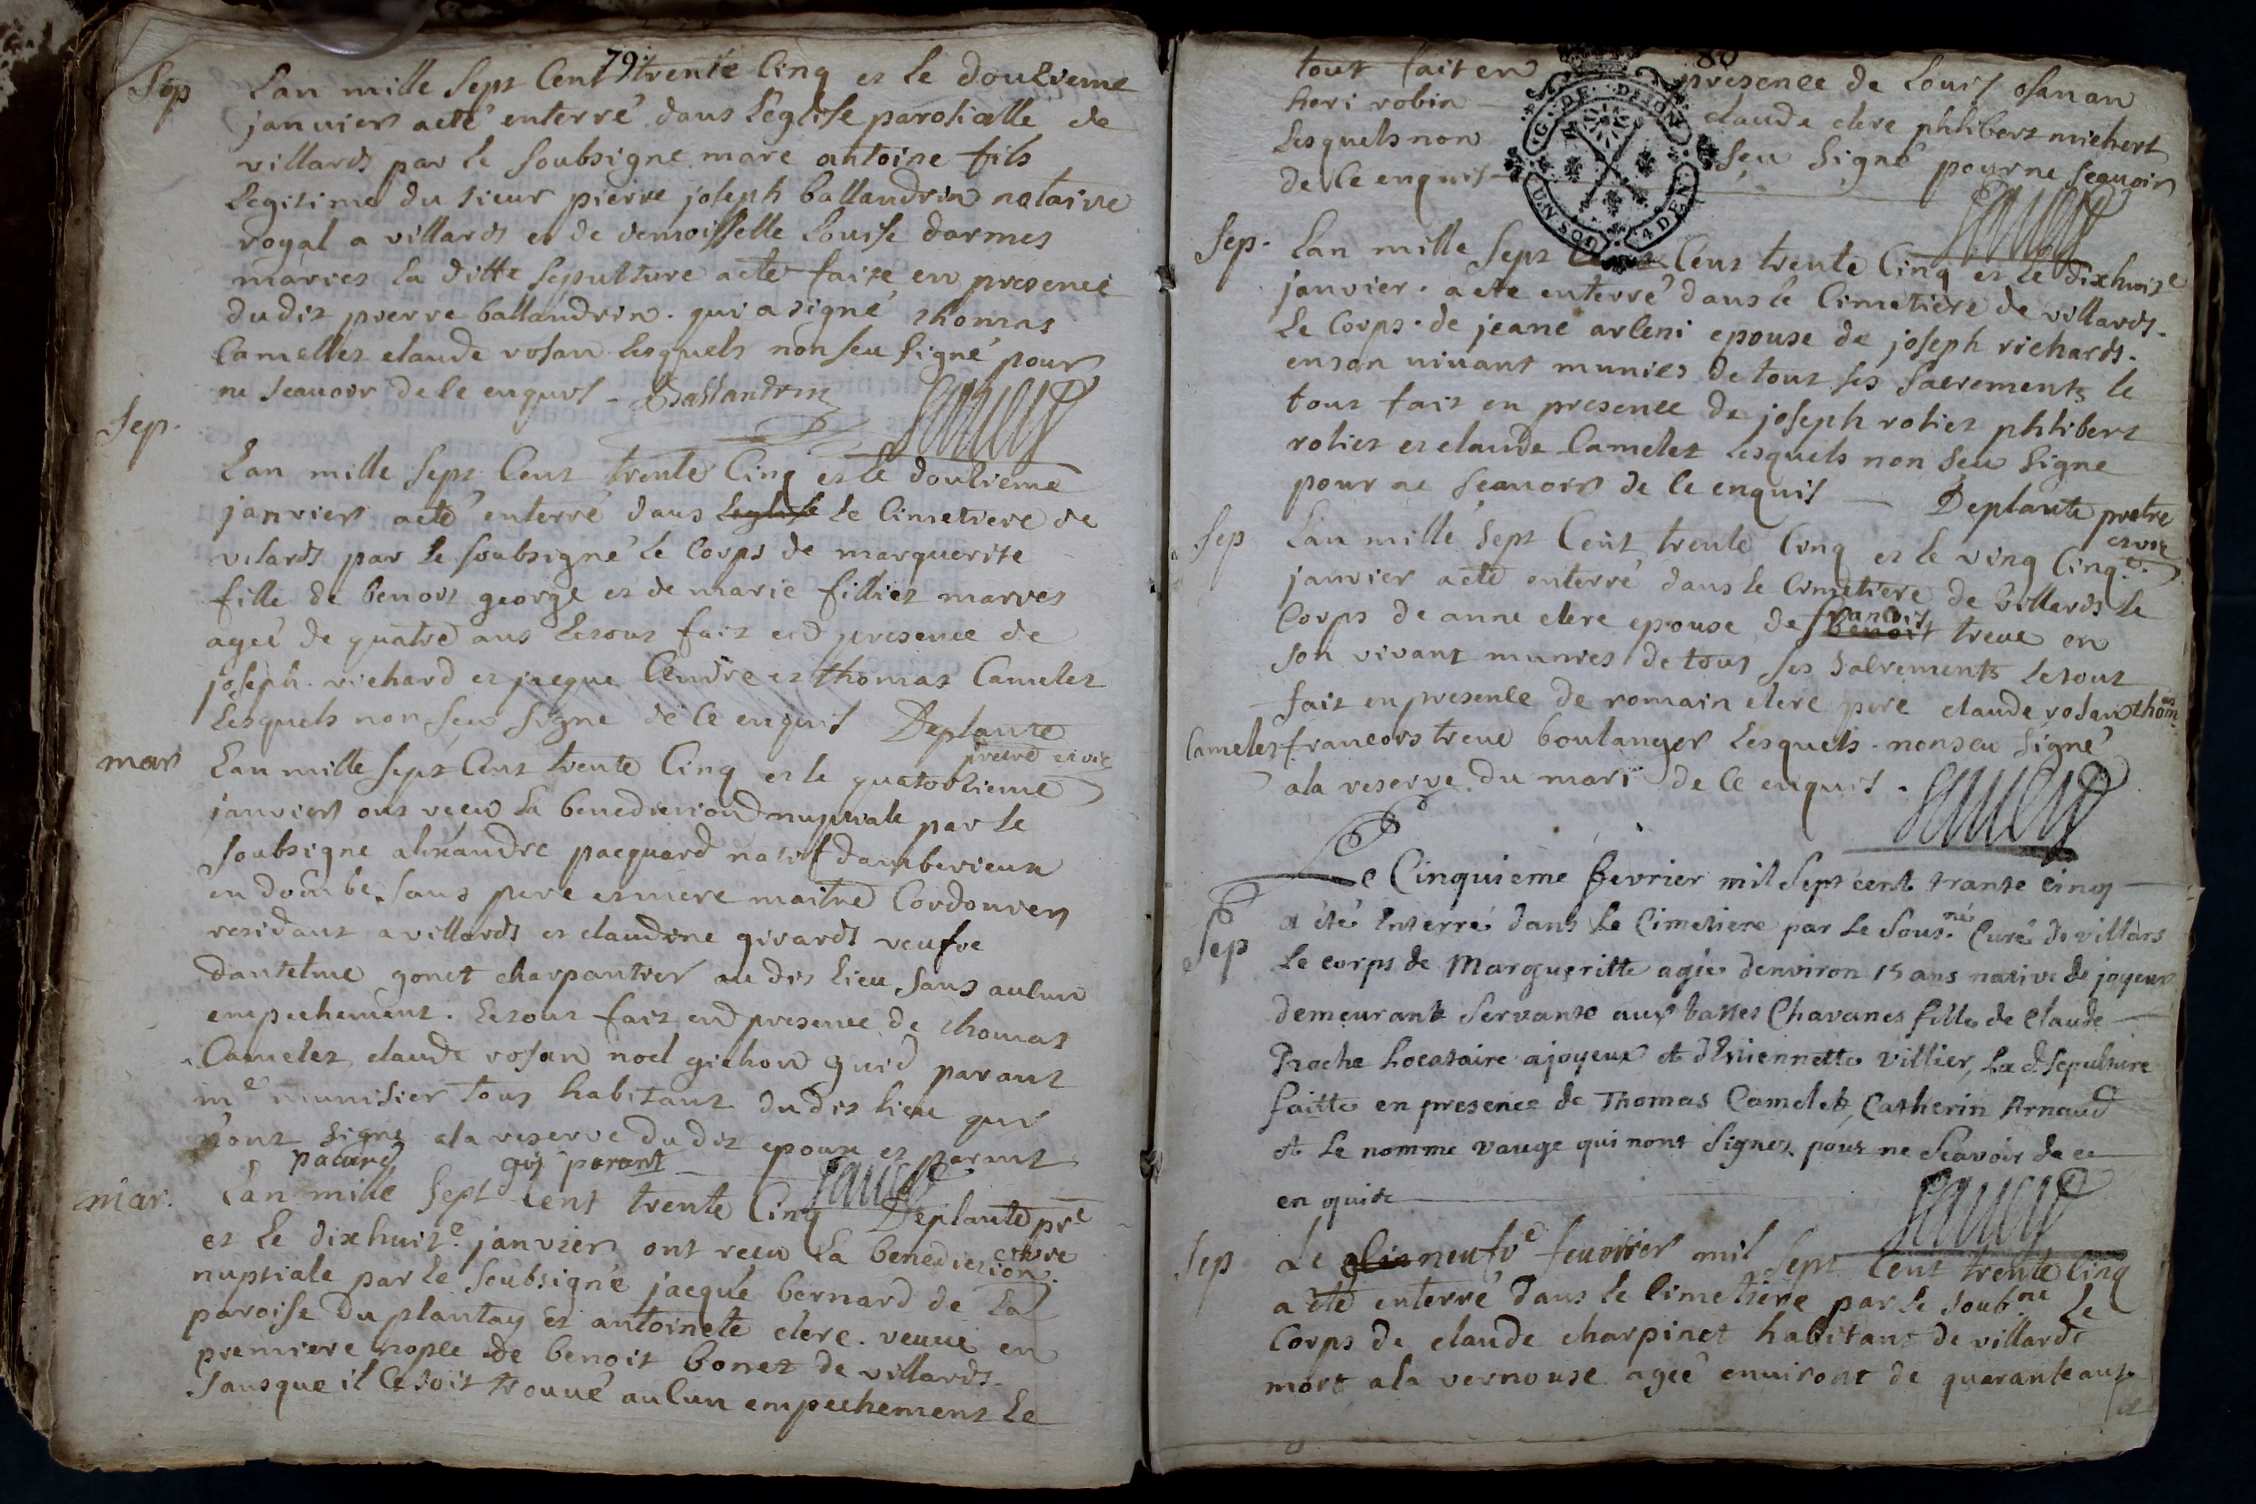 79
Sep
Lan mille Sept Cent trente Cinq et le douzieme
janvier aeté enterré dans l'eglise parosialle de
villards par le soubsigne marc antoine fils
legitime du sieur pierre joseph ballandrin notaire
royal a villards et de demoisselle louise darmes
maries la ditte sepulture aete faite en presence
dudit pierre ballandrin. qui a signé thomas
Camellet claude rosan lesquels non seu signé pour
ne scauoir de ce enquis - Ballandrin
Sep.
Lan mille Sept Cent trente Cinq et le douzieme
janvier aeté enterré dans leglise le Cimetiere de
vilards par le soubsigné le Corps de marguerite
fille de benois george et de marie filliet maries
ageé de quatre ans letout fait en presence de
joseph. richard et jacque Cendre et thomas Camelet
lesquels non seu signe de ce enquis Deplante
pretre et vic
mar
Lan mille Sept Cent trente Cinq et le quatorzieme
janvier ont receu la benediction nuptiale par le
soubsigne alexandre pacquard natif damberieux
en dombe sans pere et mere maitre Cordonier
residant a villards et claudine girards veufve
dantelme gonet charpantier au dit lieu sans aulcun
empechement. letout fait en presence de thomas
Camelet claude rosan noel gichon guid parant
me menuisier tous habitant dudit lieu qui
nont signe ala reserve dudit epoux et parant
pacard guy parant
mar.
Lan mille Sept Cent trente Cinq Deplante pre
et le dixhuite janvier ont receu la benediction et vic
nuptiale par le soubsigné jacque bernard de la
paroise du plantay et antoinete clere. veuue en
premiere nopce de benoit bonet de villards.
sans que il ce soit trouué aulcun empechement le
80
tout fait en presence de louis osanan
heri robin claude clere phlibert michert
lesquels non seu signé pour ne scauoir
de ce enquis
Sep.
Lan mille Sept Cent Cent trente Cinq et le dixhuite
janvier. aeté enterré dans le Cimetiere de villards.
le Corps. de jeane arleni epouse de joseph richards.
en son uiuant munies de tous ses sacrements le
tout fait en presence de joseph roliet phlibert
roliet et claude Camelet lesquels non seu signe
pour ne scauoir de ce enquis Deplante pretre
et vic
Sep
Lan mille Sept Cent trente Cinq et le ving Cinqe
janvier aeté enterré dans le Cimetiere de villards le
Corps de anne clere epouse de benoit francois treue en
son vivant munies de tous ses sacrements letout
fait en presence de romain clere pere claude rosan thomas
Camelet francois treue boulanger lesquels. non seu signé
ala reserve du mari de ce enquis.
Sep
Le Cinquieme fevrier mil Sept cent trante cinq
a été Enterré dans le Cimetiere par le sousné Curé de villars
le corps de Margueritte agée denviron 15 ans native de joyeux
demeurant servante aux basses Chavanes fille de Claude
Proche Locataire a joyeux et d'Etiennette villier, la d sepulture
faitte en presence de Thomas Camelet, Catherin Arnaud
et le nomme vauge qui nont signez pour ne scavoir de ce
enquis
Sep
Le dixneufve feuvrier mil Sept Cent trente Cinq
a eté enterré dans le Cimetiere par le soubné le
Corps de claude charpinet habitant de villards
mort ala vernouse ageé environt de quarante ans